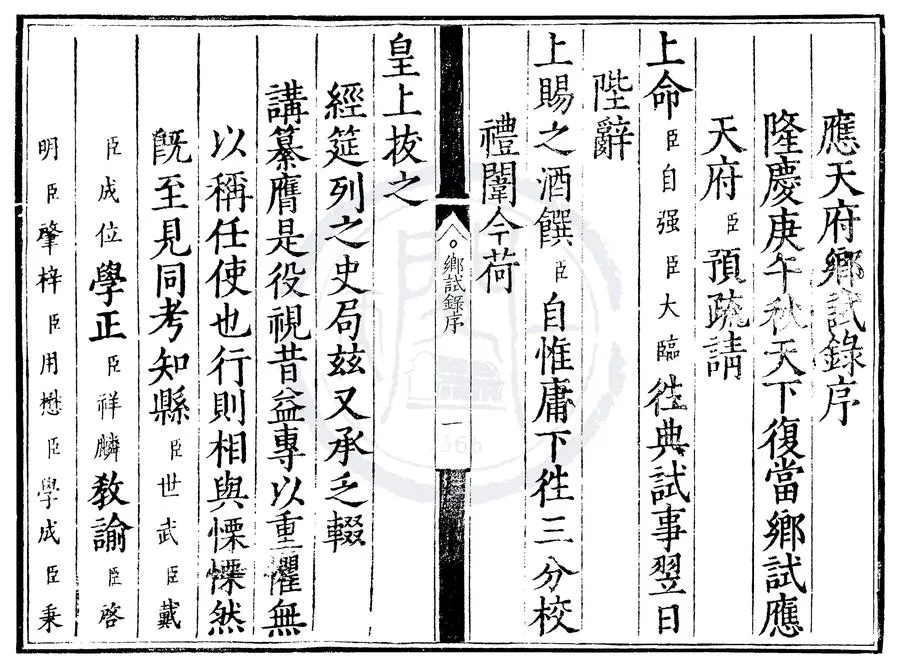 應天府鄉試錄序
隆慶庚午秋天下復當鄉試應
天府臣預疏請
上命臣自强臣大臨徃典試事翌日
陛辭
上賜之酒饌臣自惟庸下徃三分校
禮闈今荷
鄉試錄序 一
皇上拔之
經筵列之史局玆又承乏輟
講纂膺是役視昔益專以重懼無
以稱任使也行則相與慄慄然
旣至見同考知縣臣世武臣戴
臣成位學正臣祥麟敎諭臣啓
明臣肇梓臣用懋臣學成臣秉